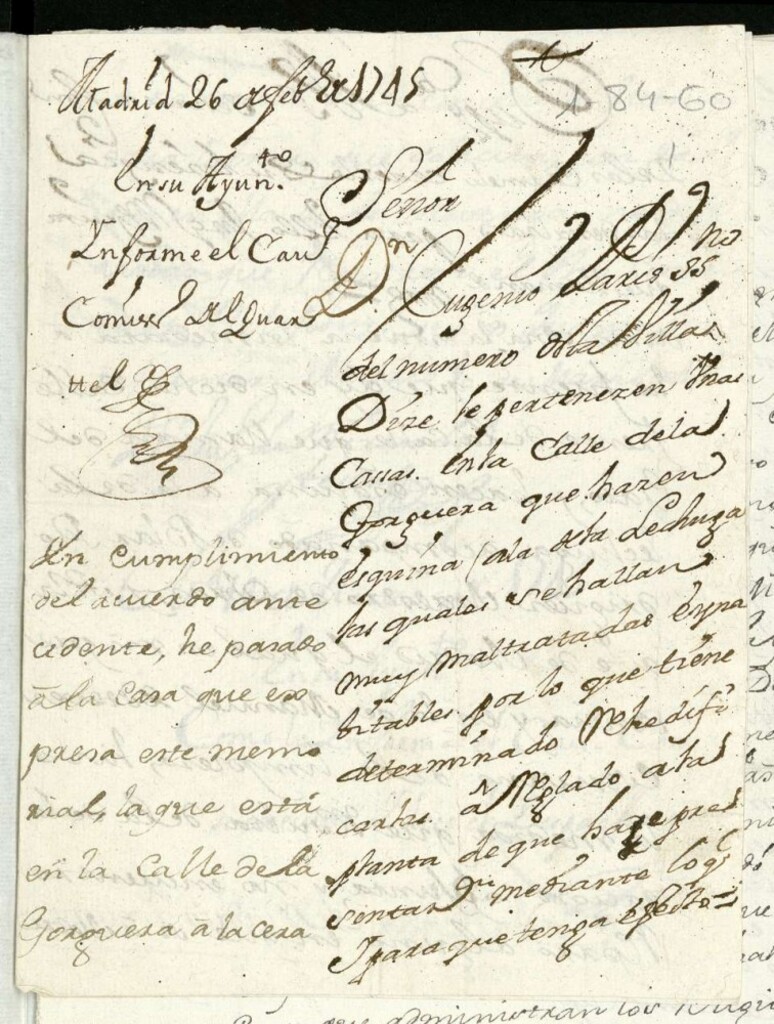 1-84-60
Madrid 26 de feb.º de 1745
En su Ayun.to
Informe el Cav.º
Comiss.º del Quar
ttel
En cumplimiento
del acuerdo ante
cedente, he pasado
â la casa que ex
presa este memo
rial, la que está
en la Calle de la
Gorguera â la cera
Señor
Dn Eugenio Paris ss no
del numero desta Villa
Dize le pertenezen Unas
Cassas en la Calle dela
Gorguera que hazen
esquina ala dela Lechuga
las quales se hallan
muy maltratadas e yna
bitables por lo que tiene
determinado Rehedifi
carlas arreglado a la
planta de que haze pres
sentaz.on mediante lo ql
Y para que tenga efecto =
que administran los